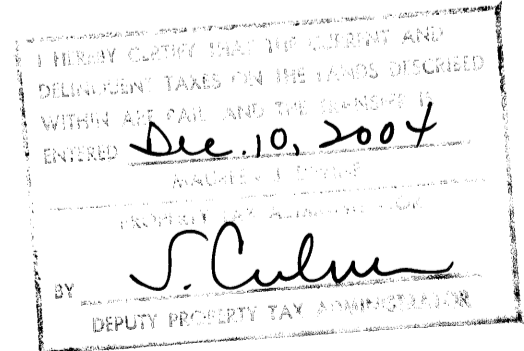 I HEREBY CERTIFY THAT THE CURRENT AND
DELINQUENT TAXES ON THE LANDS DESCRIBED
WITHIN ARE PAID AND THE TRANSFER IS
ENTERED Dec. 10, 2004
PROPERTY TAX ADMINISTRATOR
BY S.
DEPUTY PROPERTY TAX ADMINISTRATOR